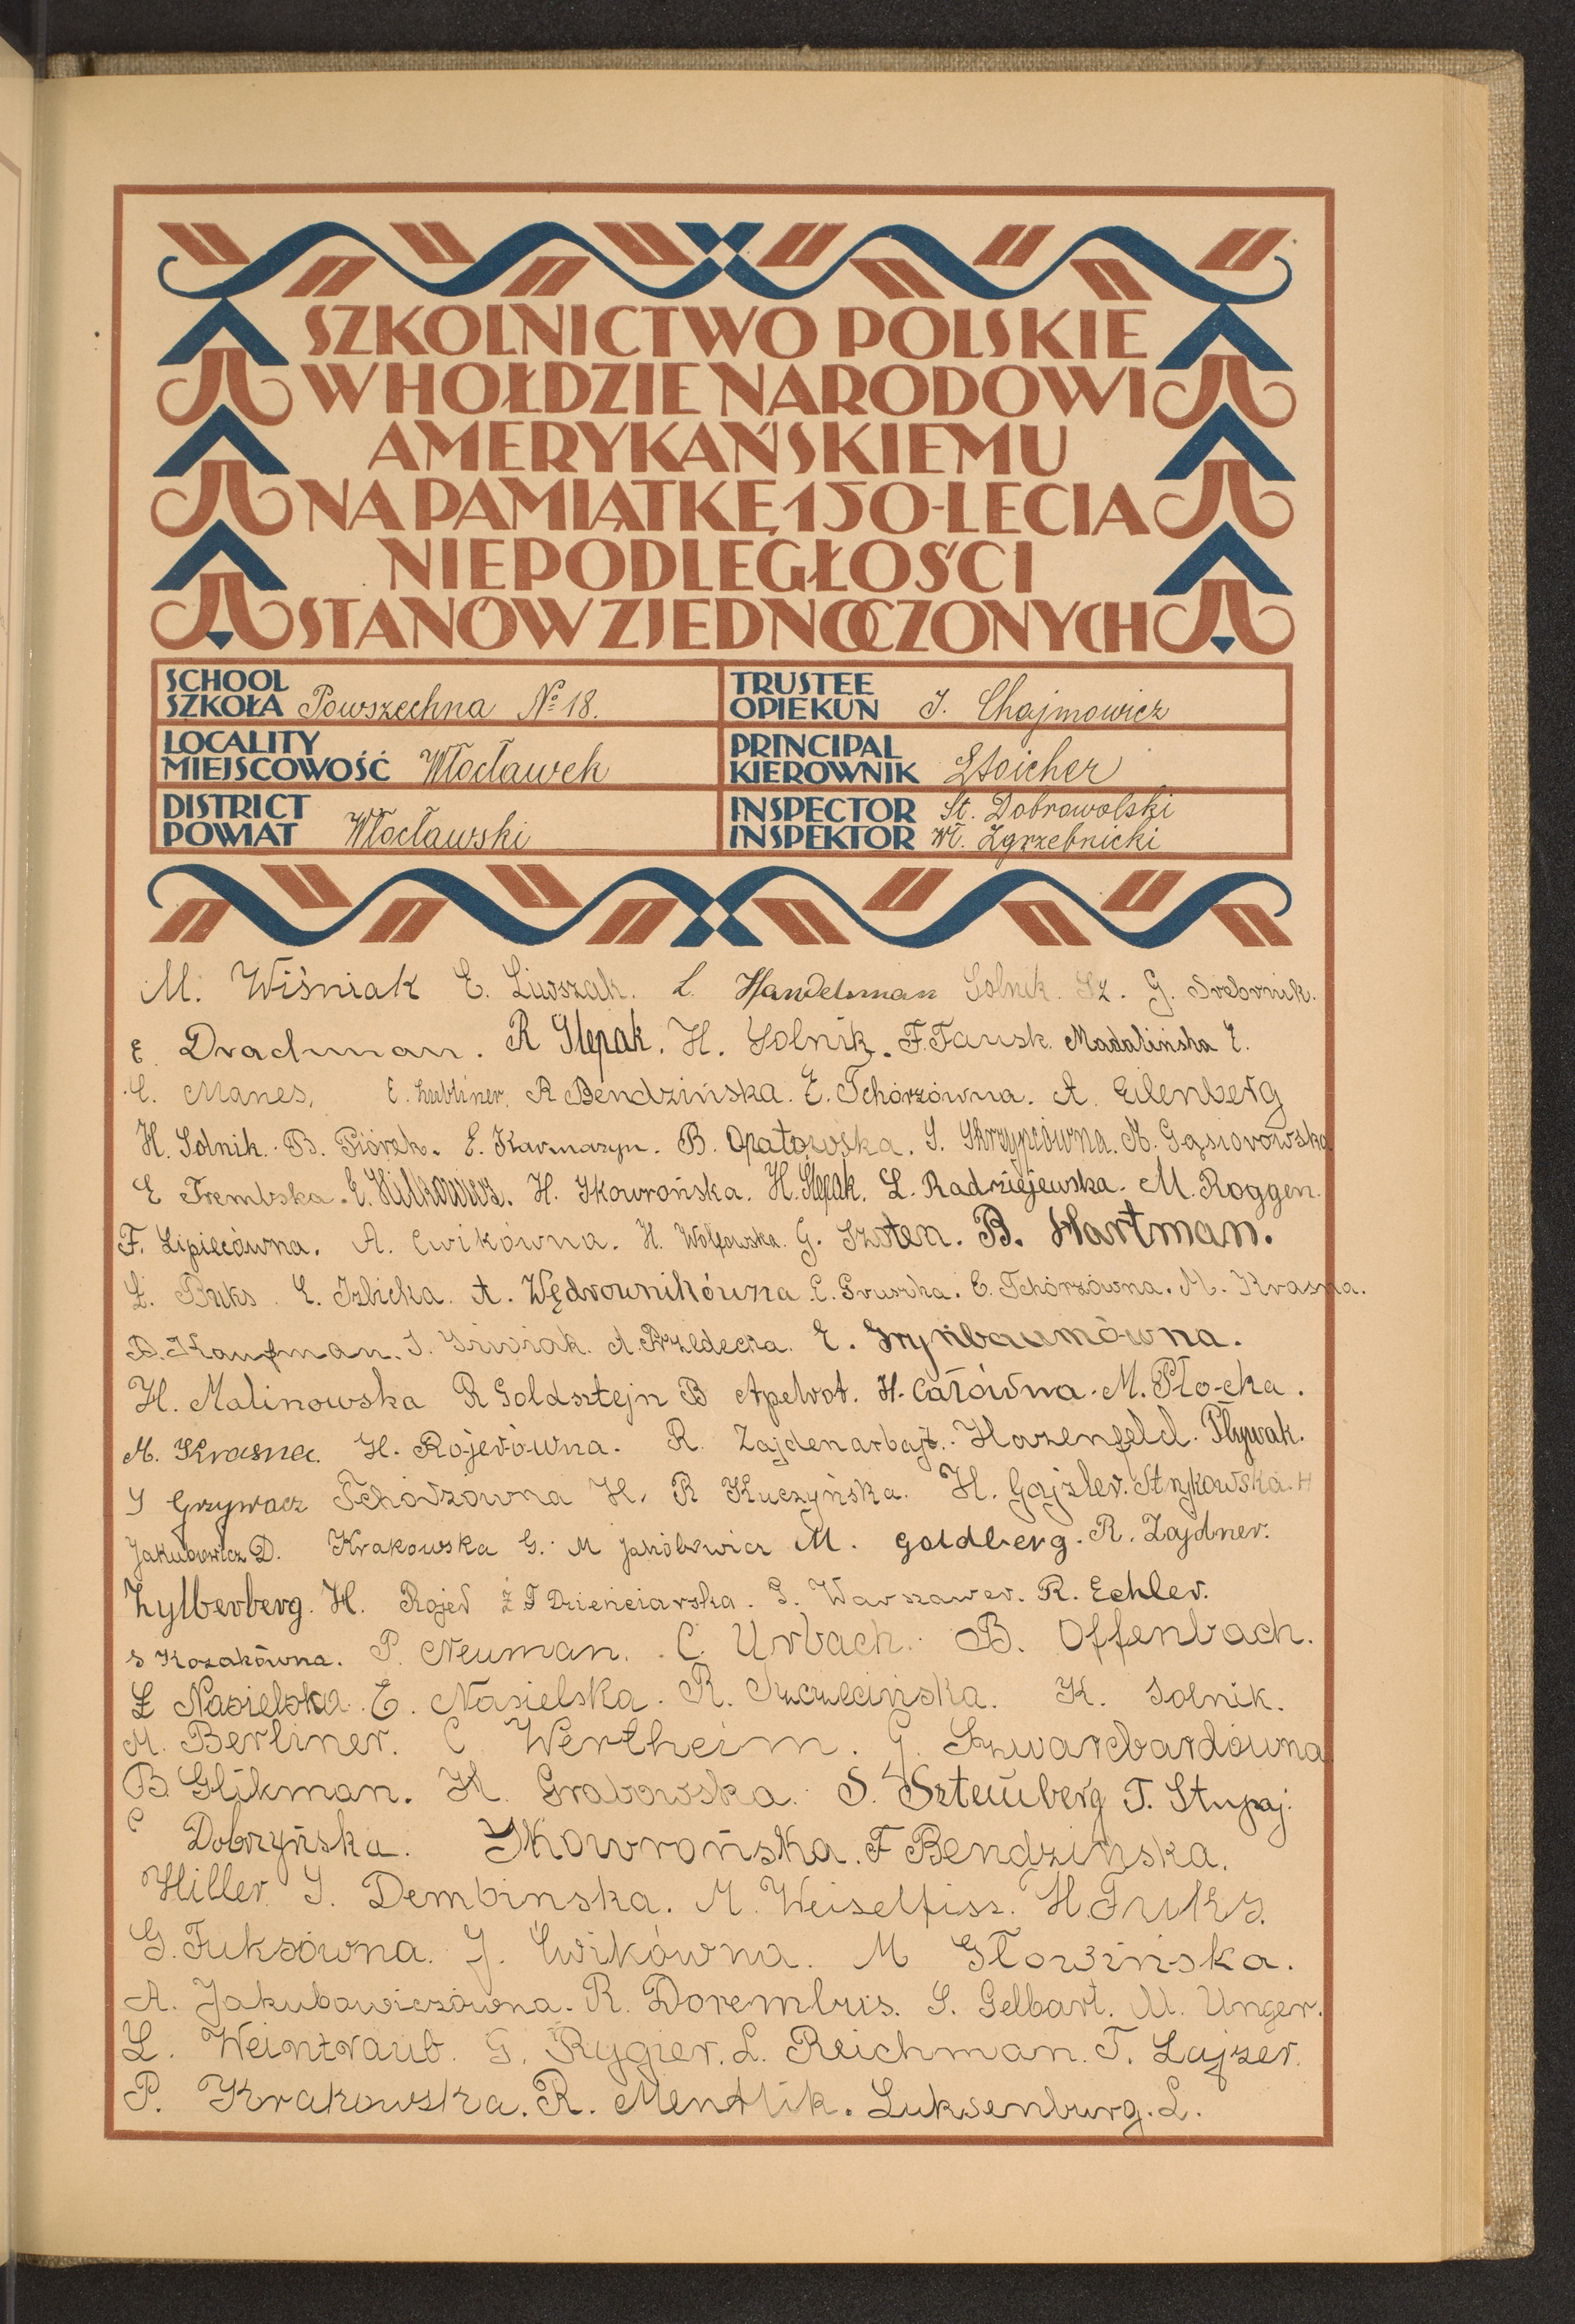 SZKOLNICTWO POLSKIE
W HOŁDZIE NARODOWI
AMERYKAŃSKIEMU
NA PAMIĄTKĘ 150-LECIA
NIEPODLEGŁOŚCI
STANÓW ZJEDNOCZONYCH
SCHOOL
SZKOŁA Powszechna № 18.
TRUSTEE
OPIEKUN J. Chajmowicz
LOCALITY
MIEJSCOWOŚĆ Włocławek
PRINCIPAL
KIEROWNIK LStoicher
DISTRICT
POWIAT Włocławski
INSPECTOR St. Dobrowolski
INSPEKTOR Wł. Zgrzebnicki
M. Wiśniak E. Liwszak. L. Handelsman Solnik. Sz. G. Srebrnik.
E. Drachman. R Ślepak. H. Solnik. F. Fausk. Madalińska E.
C. Manes. E. Lubliner. R Bendzińska. E. Tchórzówna. A. Eilenberg
H. Solnik. B. Piórek. E. Karmazyn. B. Opatowska. S. Skrzypcówna. M. Gąsiorowska
E Trembska. H. Skowrońska. H. Ślepak. L. Radziejewska. M. Roggen.
F. Lipiecówna. A. Cwikówna. H. Wolfowska. G. Szoten. B. Hartman.
Ł. Buks. E. Izbicka. A. Wędrownikówna C. Gruszka. E. Tchórzówna. M. Krasna.
D. Kaufman. A. Przedecka. E. Grynbaumówna.
H. Malinowska R Goldsztejn B Apelrot. H. Całówna. M. Płocka.
M. Krasna. H. Rojerówna. R. Zajdenarbajt. Hazenfeld. Pływak.
S Grzywacz Tchórzówna H. R Kuczyńska. H. Gajzler. Strykowska. H
Jakubowicz D. Krakowska G. M Jakóbowicz M. Goldberg. R. Zajdner.
Zylberberg. H. Rojer Ż T Dzienciarska. G. Warszawer. R. Echler.
S Kozakówna. P. Neuman. C. Urbach. B. Offenbach.
Ł Nasielska. E. Nasielska. R. Szczecińska. K. Solnik.
M. Berliner. C Wertheim. G. Szwarcbardówna
B. Glikman. H. Grabowska. S. Szternberg T. Stupaj.
C Dobrzyńska. Skowrońska. F Bendzińska.
Hiller S. Dembinska. M. Weiselfisz. H. Fuks.
G. Fuksówna. J. Ćwikówna. M Głowińska.
A. Jakubowiczówna. R. Dorembus. S. Gelbart. M. Unger.
L. Weintraub. G. Rygier. L. Reichman. T. Lajzer.
P. Krakowska. R. Mendlik. Luksenburg. L.